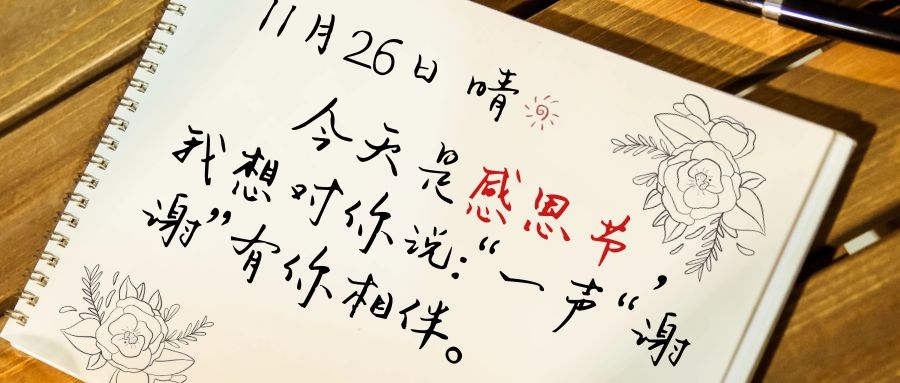 11月26日 晴
今天是感恩节，
我想对你说：“一声“谢
谢”有你相伴。